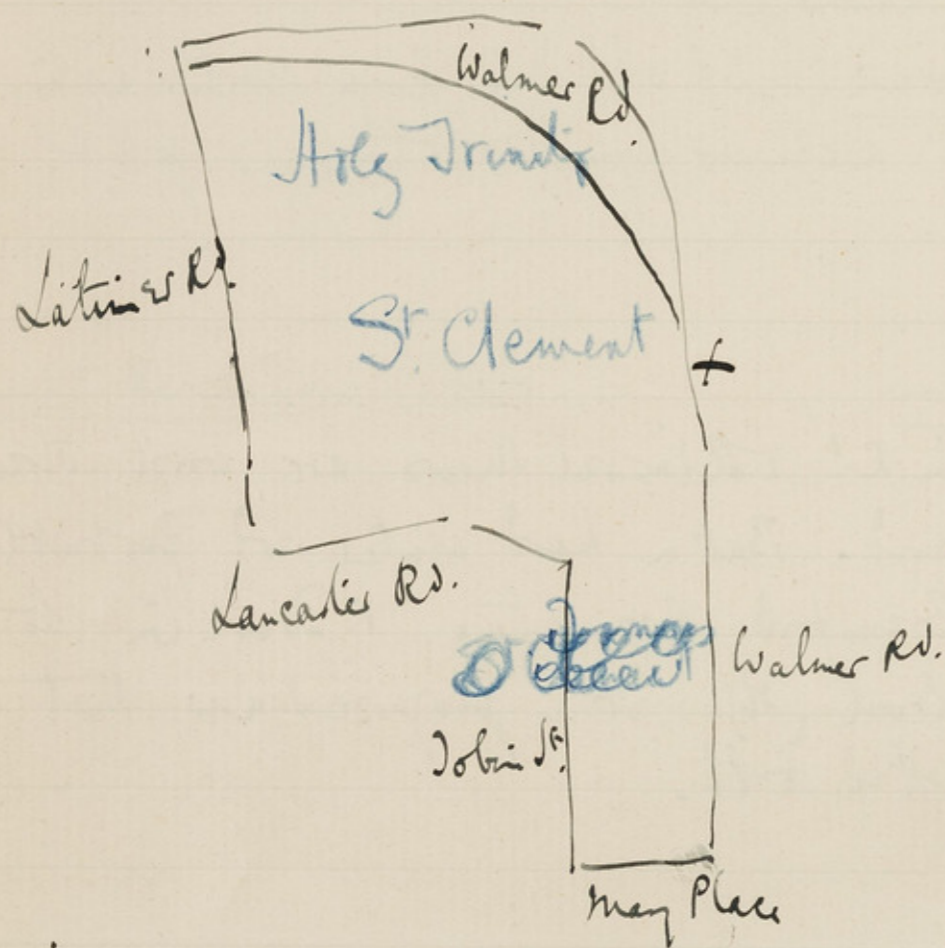 Walmer Rd.
Holy Trinity
Latimer Rd.
St. Clement
Lancaster Rd.
Walmer Rd.
Tobin St.
Mary Place